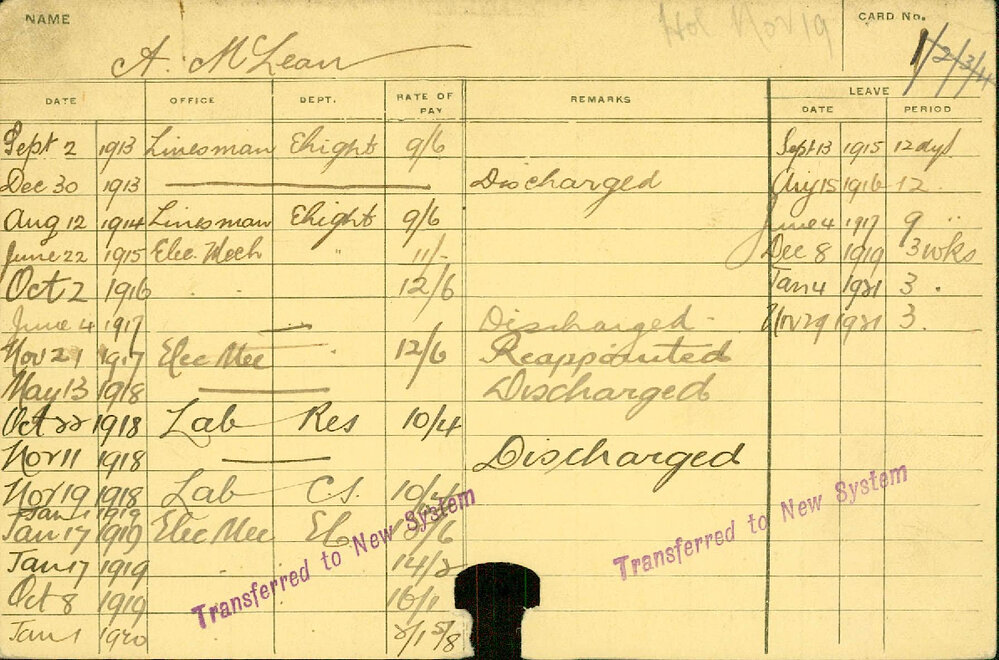 NAME A. McLean Hol Nov 19 CARD No. 1/2/3/4
DATE OFFICE DEPT. RATE OF PAY REMARKS LEAVE DATE PERIOD
Sept 2 1913 Linesman Elright 9/6 Sept 13 1915 12 dys
Dec 30 1913 Discharged Aug 15 1916 12 "
Aug 12 1914 Linesman Elright 9/6 June 4 1917 9 "
June 22 1915 Elec. Mech " 11/- Dec 8 1919 3 wks
Oct 2 1916 " " 12/6 Jan 4 1921 3 "
June 4 1917 Discharged Nov 29 1921 3 "
Nov 21 1917 Elec Mec " 12/6 Reappointed
May 13 1918 Discharged
Oct 22 1918 Lab Res 10/4
Nov 11 1918 Discharged
Nov 19 1918 Lab CS. 10/4
Jan 1 1919
Jan 17 1919 Elec Mec El 13/6
Jan 17 1919 " 14/2
Oct 8 1919 16/1
Jan 1 1920
Transferred to New System
Transferred to New System